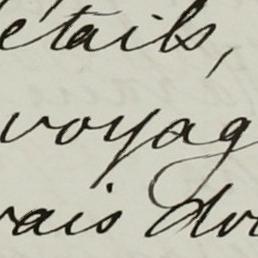 étails,
voyag
vais do